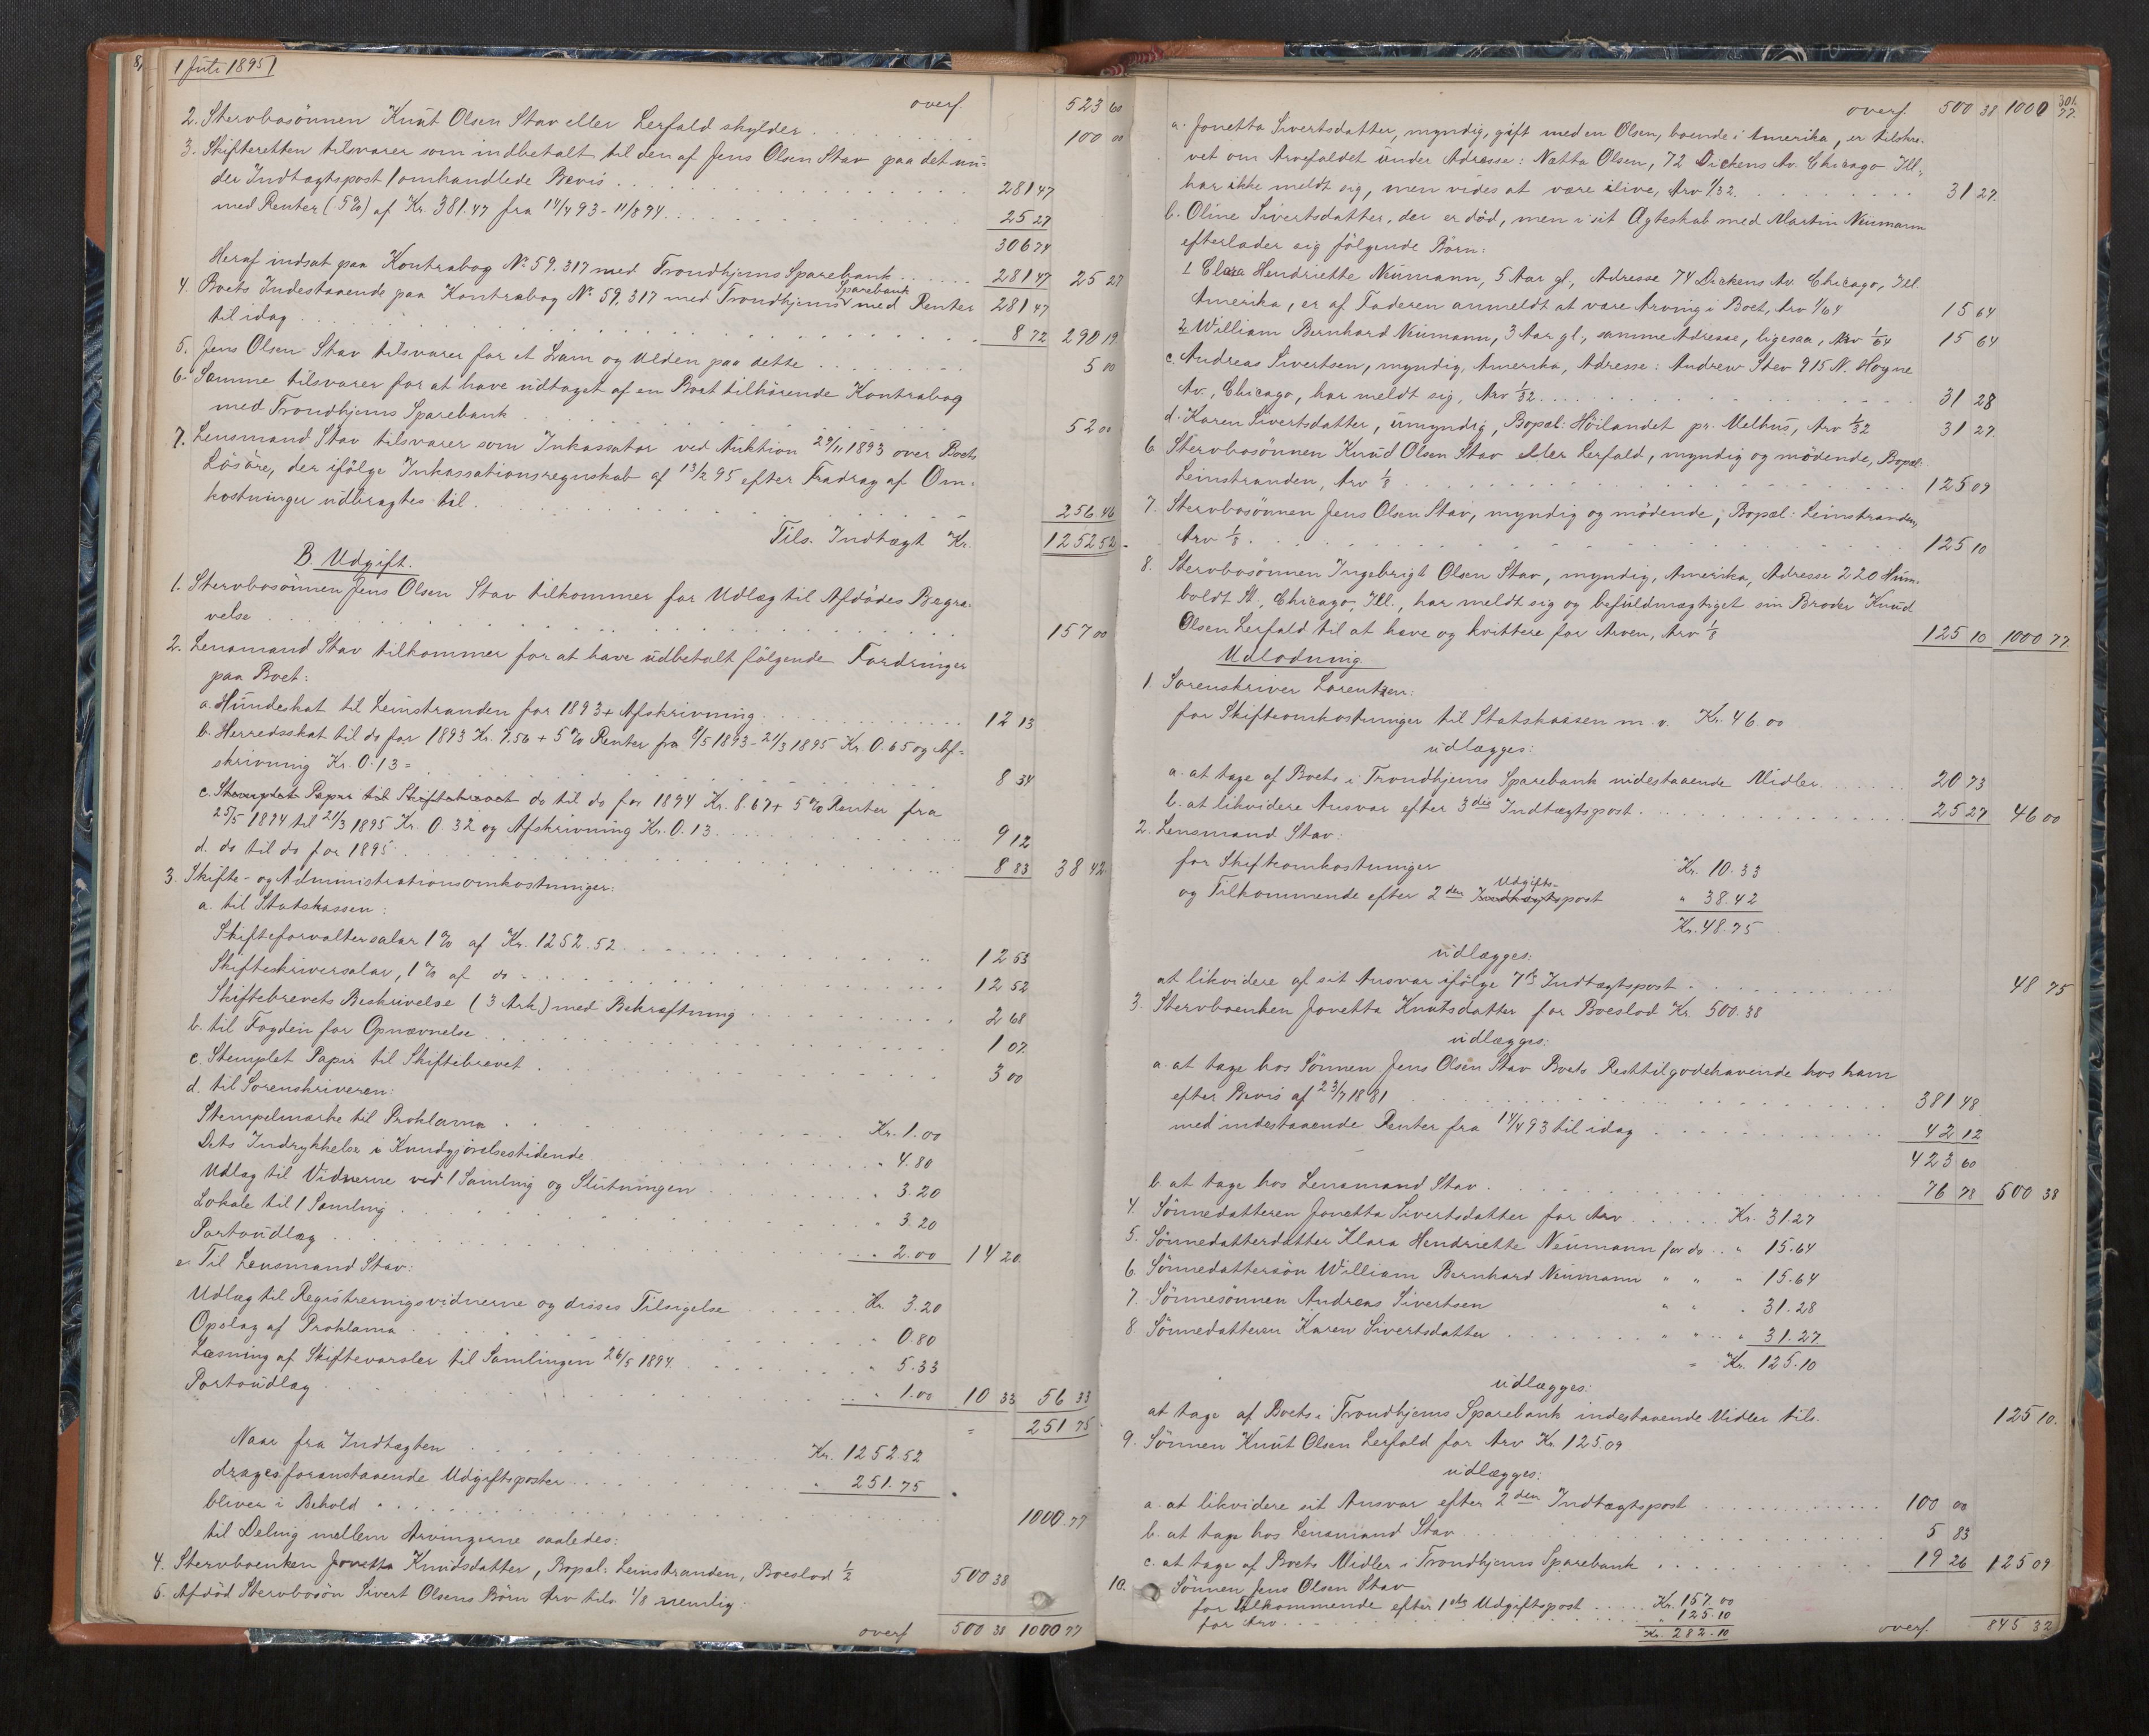 1 Juli 1895
overf. 523 60
2. Stervbosönnen Knut Olsen Stav eller Lerfald skylder . . . 100 00
3. Skifteretten tilsvarer som indbetalt til den af Jens Olsen Stav paa det un-
der Indtægtspost 1 omhandlede Bevis . . . 281 47
med Renter (5%) af Kr. 381.47 fra 14/4 93 - 11/8 94 . . . 25 27
306 74
Heraf indsat paa Kontrabog No 59.317 med Trondhjems Sparebank . . . 281 47 25 27
4. Boets Indestaaende paa Kontrabog No 59.317 med Trondhjems Sparebank med Renter 281 47
til idag . . . 8 72 290 19
5. Jens Olsen Stav tilsvarer for et Lam og Ulden paa dette . . . 5 00
6. Samme tilsvarer for at have udtaget af en Boet tilhörende Kontrabog
med Trondhjems Sparebank . . . 52 00
7. Lensmand Stav tilsvarer som Inkassator ved Auktion 29/11 1893 over Boets
Lösöre, der ifölge Inkassationsregnskab af 13/2 95 efter Fradrag af Om-
kostninger udbragtes til . . . 256.46
Tils. Indtægt Kr. 1252 52
B. Udgift.
1. Stervbosönnen Jens Olsen Stav tilkommer for Udlæg til Afdödes Begra-
velse . . . 157 00
2. Lensmand Stav tilkommer for at have udbetalt fölgende Fordringer
paa Boet:
a. Hundeskat til Leinstranden for 1893 + Afskrivning . . . 12 13
b. Herredsskat til do for 1893 Kr. 7.56 + 5% Renter fra 1/5 1893 - 21/3 1895 Kr. 0.65 og Af-
skrivning Kr. 0.13 = . . . 8 34
c. Stemplet Papir til Skiftebrevet do til do for 1894 Kr. 8.67 + 5% Renter fra
25/5 1894 til 21/3 1895 Kr. 0.32 og Afskrivning Kr. 0.13 . . . 9 12
d. do til do for 1895 . . . 8 83 38 42
3. Skifte- og Administrationsomkostninger:
a. til Statskassen:
Skifteforvaltersalar 1% af Kr. 1252.52 . . . 12 53
Skifteskriversalar, 1% af do . . . 12 52
Skiftebrevets Beskrivelse (3 Ark) med Bekræftning . . . 2 68
b. til Fogden for Opnævnelse . . . 1 07
c. Stemplet Papir til Skiftebrevet . . . 3 00
d. til Sorenskriveren:
Stempelmærke til Proklama . . . Kr. 1.00
Dets Indrykkelse i Kundgjörelsestidende . . . " 4.80
Udlæg til Vidnerne ved 1 Samling og Slutningen . . . " 3.20
Lokale til 1 Samling . . . " 3.20
Portoudlæg . . . " 2.00 14 20
e. Til Lensmand Stav:
Udlæg til Registreringsvidnerne og disses Tilsigelse . . . Kr. 3.20
Opslag af Proklama . . . " 0.80
Læsning af Skiftevarsler til Samlingen 26/5 1894 . . . " 5.33
Portoudlæg . . . " 1.00 10 33 56 33
= 251 75
Naar fra Indtægten . . . Kr. 1252.52
drages foranstaaende Udgiftsposter . . . " 251.75
bliver i Behold . . . 1000.77
til Deling mellem Arvingerne saaledes:
4. Stervboenken Jonetta Knudsdatter, Bopæl: Leinstranden, Boeslod 1/2 500 38
5. Afdöd Stervbosön Sivert Olsens Börn Arv tils. 1/8 nemlig:
overf 500 38 1000 77
301.
overf. 500 38 1000 77.
a. Jonetta Sivertsdatter, myndig, gift med en Olsen, boende i Amerika, er tilskre-
vet om Arvefaldet under Adresse: Netta Olsen, 72 Dickens Av. Chicago Ill.,
har ikke meldt sig, men vides at være ilive, Arv 1/32 . . . 31 27
b. Oline Sivertsdatter, der er död, men i sit Ægteskab med Martin Neumann
efterlader sig fölgende Börn:
1. Clara Hendriette Neumann, 5 Aar gl., Adresse 74 Dickens Av. Chicago, Ill.
Amerika, er af Faderen anmeldt at være Arving i Boet, Arv 1/64 15 64
2. William Bernhard Neumann, 3 Aar gl., samme Adresse, ligesaa, Arv 1/64 15 64
c. Andreas Sivertsen, myndig, Amerika, Adresse: Andrew Stev 915 N. Hoyne
Av., Chicago, har meldt sig, Arv 1/32 . . . 31 28
d. Karen Sivertsdatter, umyndig, Bopæl: Höilandet pr. Melhus, Arv 1/32 31 27.
6. Stervbosönnen Knud Olsen Stav eller Lerfald, myndig og mödende, Bopæl:
Leinstranden, Arv 1/8 . . . 125 09
7. Stervbosönnen Jens Olsen Stav, myndig og mödende, Bopæl: Leinstranden,
Arv 1/8 . . . 125 10
8. Stervbosönnen Ingebrigt Olsen Stav, myndig, Amerika, Adresse 220 Hum-
boldt St., Chicago, Ill., har meldt sig og befuldmægtiget sin Broder Knud
Olsen Lerfald til at hæve og kvittere for Arven, Arv 1/8 125 10 1000 77.
Udlodning
1. Sorenskriver Lorentzen:
for Skifteomkostninger til Statskassen m. v. Kr. 46.00
udlægges:
a. at tage af Boets i Trondhjems Sparebank indestaaende Midler . . . 20 73
b. at likvidere Ansvar efter 3die Indtægtspost . . . 25 27 46 00
2. Lensmand Stav:
for Skifteomkostninger Kr. 10.33
og Tilkommende efter 2den Indtægts Udgifts-post " 38.42
Kr. 48.75
udlægges:
at likvidere af sit Ansvar ifölge 7de Indtægtspost . . . 48 75
3. Stervboenken Jonetta Knutsdatter for Boeslod Kr. 500.38
udlægges:
a. at tage hos Sönnen Jens Olsen Stav Boets Resttilgodehavende hos ham
efter Bevis af 23/7 1881 . . . 381 48
med indestaaende Renter fra 14/4 93 til idag . . . 42 12
423 60
b. at tage hos Lensmand Stav . . . 76 78 500 38
4. Sönnedatteren Jonetta Sivertsdatter for Arv . . . Kr. 31.27
5. Sönnedatterdatter Klara Hendriette Neumann for do . . " 15.64
6. Sönnedattersön William Bernhard Neumann " " " 15.64
7. Sönnesönnen Andreas Sivertsen " " " 31.28
8. Sönnedatteren Karen Sivertsdatter . . . " " " 31.27
= Kr. 125.10
udlægges:
at tage af Boets i Trondhjems Sparebank indestaaende Midler tils. 125 10.
9. Sönnen Knut Olsen Lerfald for Arv Kr. 125.09
udlægges:
a. at likvidere sit Ansvar efter 2den Indtægtspost . . . 100 00
b. at tage hos Lensmand Stav . . . 5 83
c. at tage af Boets Midler i Trondhjems Sparebank . . . 19 26 125 09
10. Sönnen Jens Olsen Stav
for Tilkommende efter 1ste Udgiftspost . . . Kr. 157.00
for Arv . . . " 125.10
Kr. 282.10
overf. 845 32